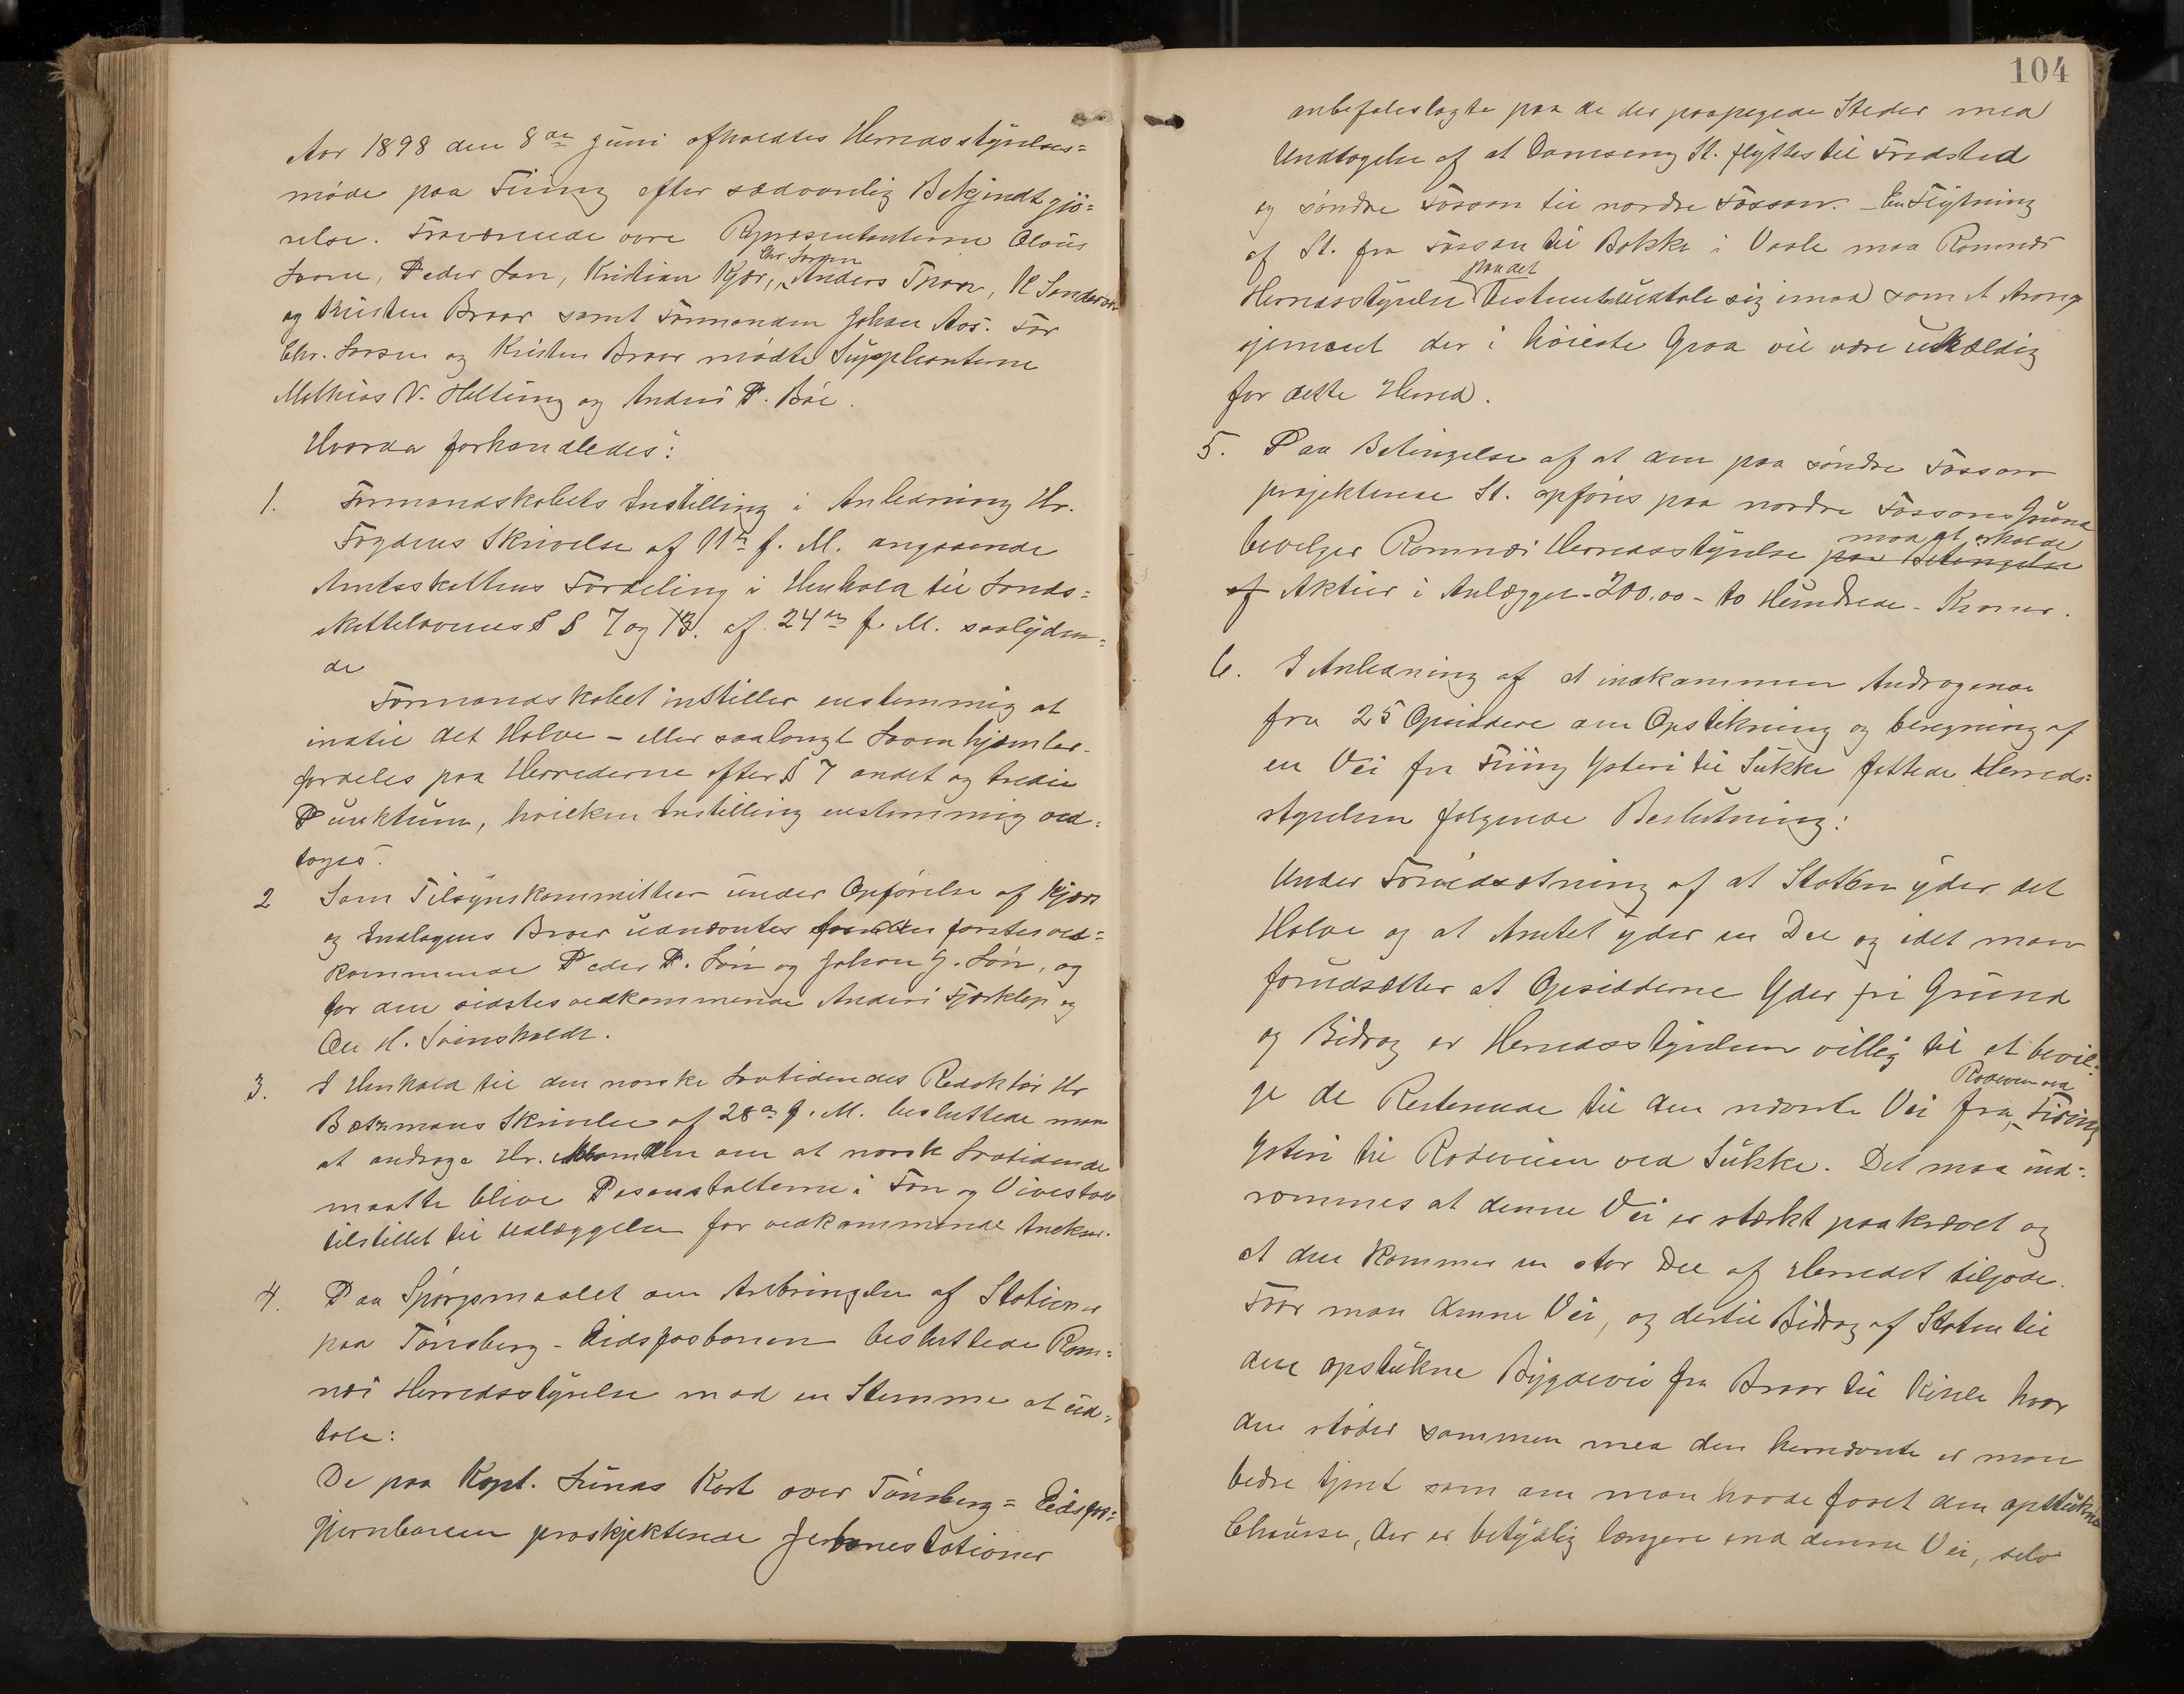 Aar 1898 den 8de Juni afholdtes Herredsstyrelses=
møde paa Firing efter sædvanlig Bekjendtgjø=
relse. Fraværende vare Repræsentanterne Olaus
Chr. Larsen
Peder Søn, Kristian Kjær, Anders
og Kristen Braar samt Formanden Johan Aas. For
Chr. Larsen og Kristen Braar mødte Suppleanterne
Mathias N. Helting og Andreas P. Bøe.
Hvorda forhandledes:
1. Formandskabets Instilling i Anledning Hr.
Fogdens Skrivelse af 11te f. M. angaaende
Amtsskattens Fordeling i Henhold til Lands=
skattelovenes §§ 7 og 13. af 24de f. M. saalyden=
de
Formandskabet instiller enstemmig at
indtil det Halve – eller saalangt Loven hjemler
fordeles paa Herrederne efter § 7 andet og tredie
Punktum, hvilken Instilling enstemmig ved=
toges.
2 Som Tilsynskommitteer under Opførelse af Kjærs
og Indlagens Broer udnævntes for den førstes ved=
kommende Peder P. Søn og Johan J. Søn, og
for den sidstes vedkommende Anders Fjærklep og
Ole H. Svinsholdt.
3. I Henhold til den norske Lovtidendes Redaktør Hr
Bætzmans Skrivelse af 28de f. M. besluttede man
at andrage Hr. Amtmanden om at norsk Lovtidende
maatte blive Posanstalterne i Fon og Vivestad
tilstillet til Udlæggelse for vedkommende Annekser.
4. Paa Spørgsmaalet om Anbringelse af Stationer
paa Tønsberg - Eidsfosbanen besluttede Ram=
næs Herredsstyrelse mod en Stemme at ud=
tale:
De paa Kapt. Lunds Kart over Tønsberg = Eidsfos=
Jernbanen proskjekterede Jerbanestationer
104
anbefales lagte paa de der paapegede Steder med
Undtagelse af at Damseng St. flyttes til Fredsted
og søndre Fossan til nordre Fossan. – En Flytning
af St. fra Fossan til Bakke i Vaale maa Ramnæs
paa det
Herredsstyrelse bestemteste udtale sig imod som et Arang
sjement der i høieste Grad vil være uheldig
for dette Herred.
5. Paa Betingelse af at den paa søndre Fossan
projekterede St. opføres paa nordre Fossans Grund
maa at erholde
bevilger Ramnæs Herredsstyrelse paa Betingelse
af Aktier i Anlægget - 200.00 - to Hundrede - Kroner.
6. I Anledning af et indkommen Andragende
fra 25 Opsiddere om Opstikning og beregning af
en Vei fra Firing Ysteri til Sukke fattede Herreds=
styrelsen følgende Beslutning:
Under Forudsætning af at Staten yder det
Halve og at Amtet yder en Del og idet man
forudsætter at Opsidderne Yder fri Grund
og Bidrag er Herredsstyrelsen villig til at bevil=
Rodeveien ved
ge de Resterende til den nævnte Vei fra Firing
Ysteri til Rodeveien ved Sukke. Det maa ind=
rømmes at denne Vei er stærkt paakrævet og
at den kommer en stor Del af Herredet tilgode.
Faar man denne Vei, og dertil Bidrag af Staten til
den opstukne Bygdevei fra Braar til Kirke hvor
den støder sammen med den hernævnte er man
bedre tjent som om man havde faaet den opstukne
Chausse, der er betydelig længere end denne Vei, selv